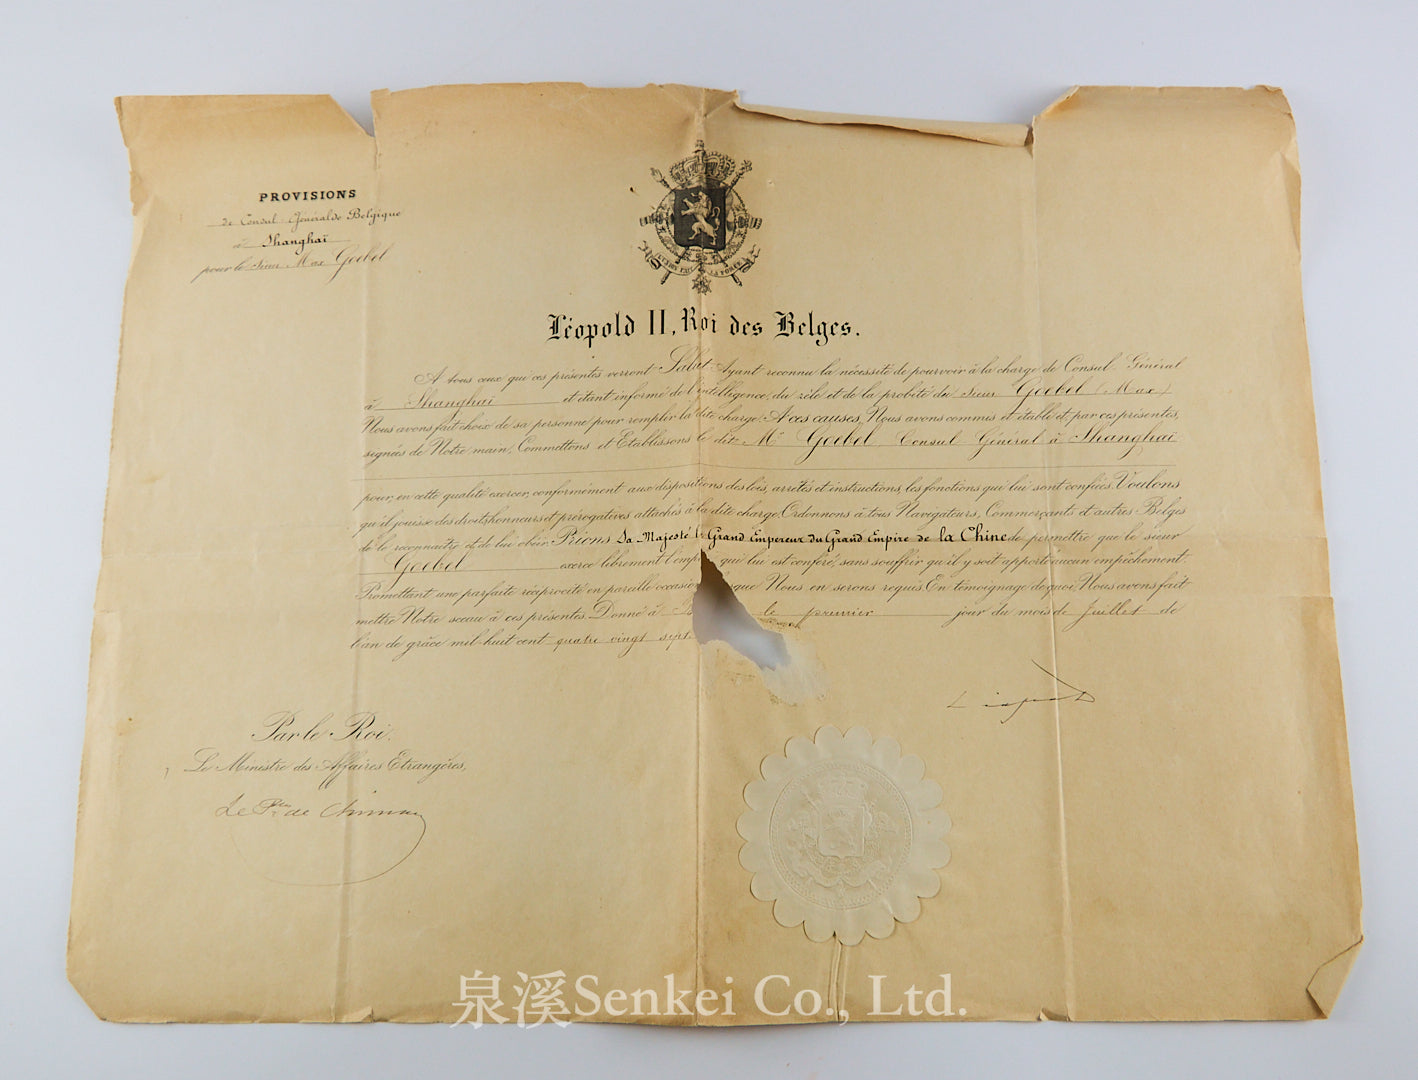 PROVISIONS
de Consul Général de Belgique
à Shanghaï
pour le Sieur Max Goebel
L'UNION FAIT LA FORCE
Léopold II, Roi des Belges.
A tous ceux qui ces présentes verront Salut. Ayant reconnu la nécessité de pourvoir à la charge de Consul Général
à Shanghaï et étant informé de l'intelligence, du zèle et de la probité du Sieur Goebel (Max)
Nous avons fait choix de sa personne pour remplir la dite charge. A ces causes, Nous avons commis et établi et, par ces présentes,
signées de Notre main, Commettons et Etablissons le dit Mr Goebel, Consul Général à Shanghaï
pour, en cette qualité exercer, conformément aux dispositions des lois, arrêtés et instructions, les fonctions qui lui sont confiées. Voulons
qu'il jouisse des droits, honneurs et prérogatives attachés à la dite charge. Ordonnons à tous Navigateurs, Commerçants et autres Belges
de le reconnaître et de lui obéir. Prions Sa Majesté le Grand Empereur du Grand Empire de la Chine de permettre que le sieur
Goebel exerce librement l'emploi qui lui est conféré, sans souffrir qu'il y soit apporté aucun empêchement.
Promettant une parfaite réciprocité en pareille occasion que Nous en serons requis. En témoignage de quoi, Nous avons fait
mettre Notre sceau à ces présentes. Donné à le premier jour du mois de Juillet de
l'an de grâce mil huit cent quatre vingt sept
Léopold
Par le Roi:
Le Ministre des Affaires Etrangères,
Le Pce de Chimay
泉溪Senkei Co., Ltd.